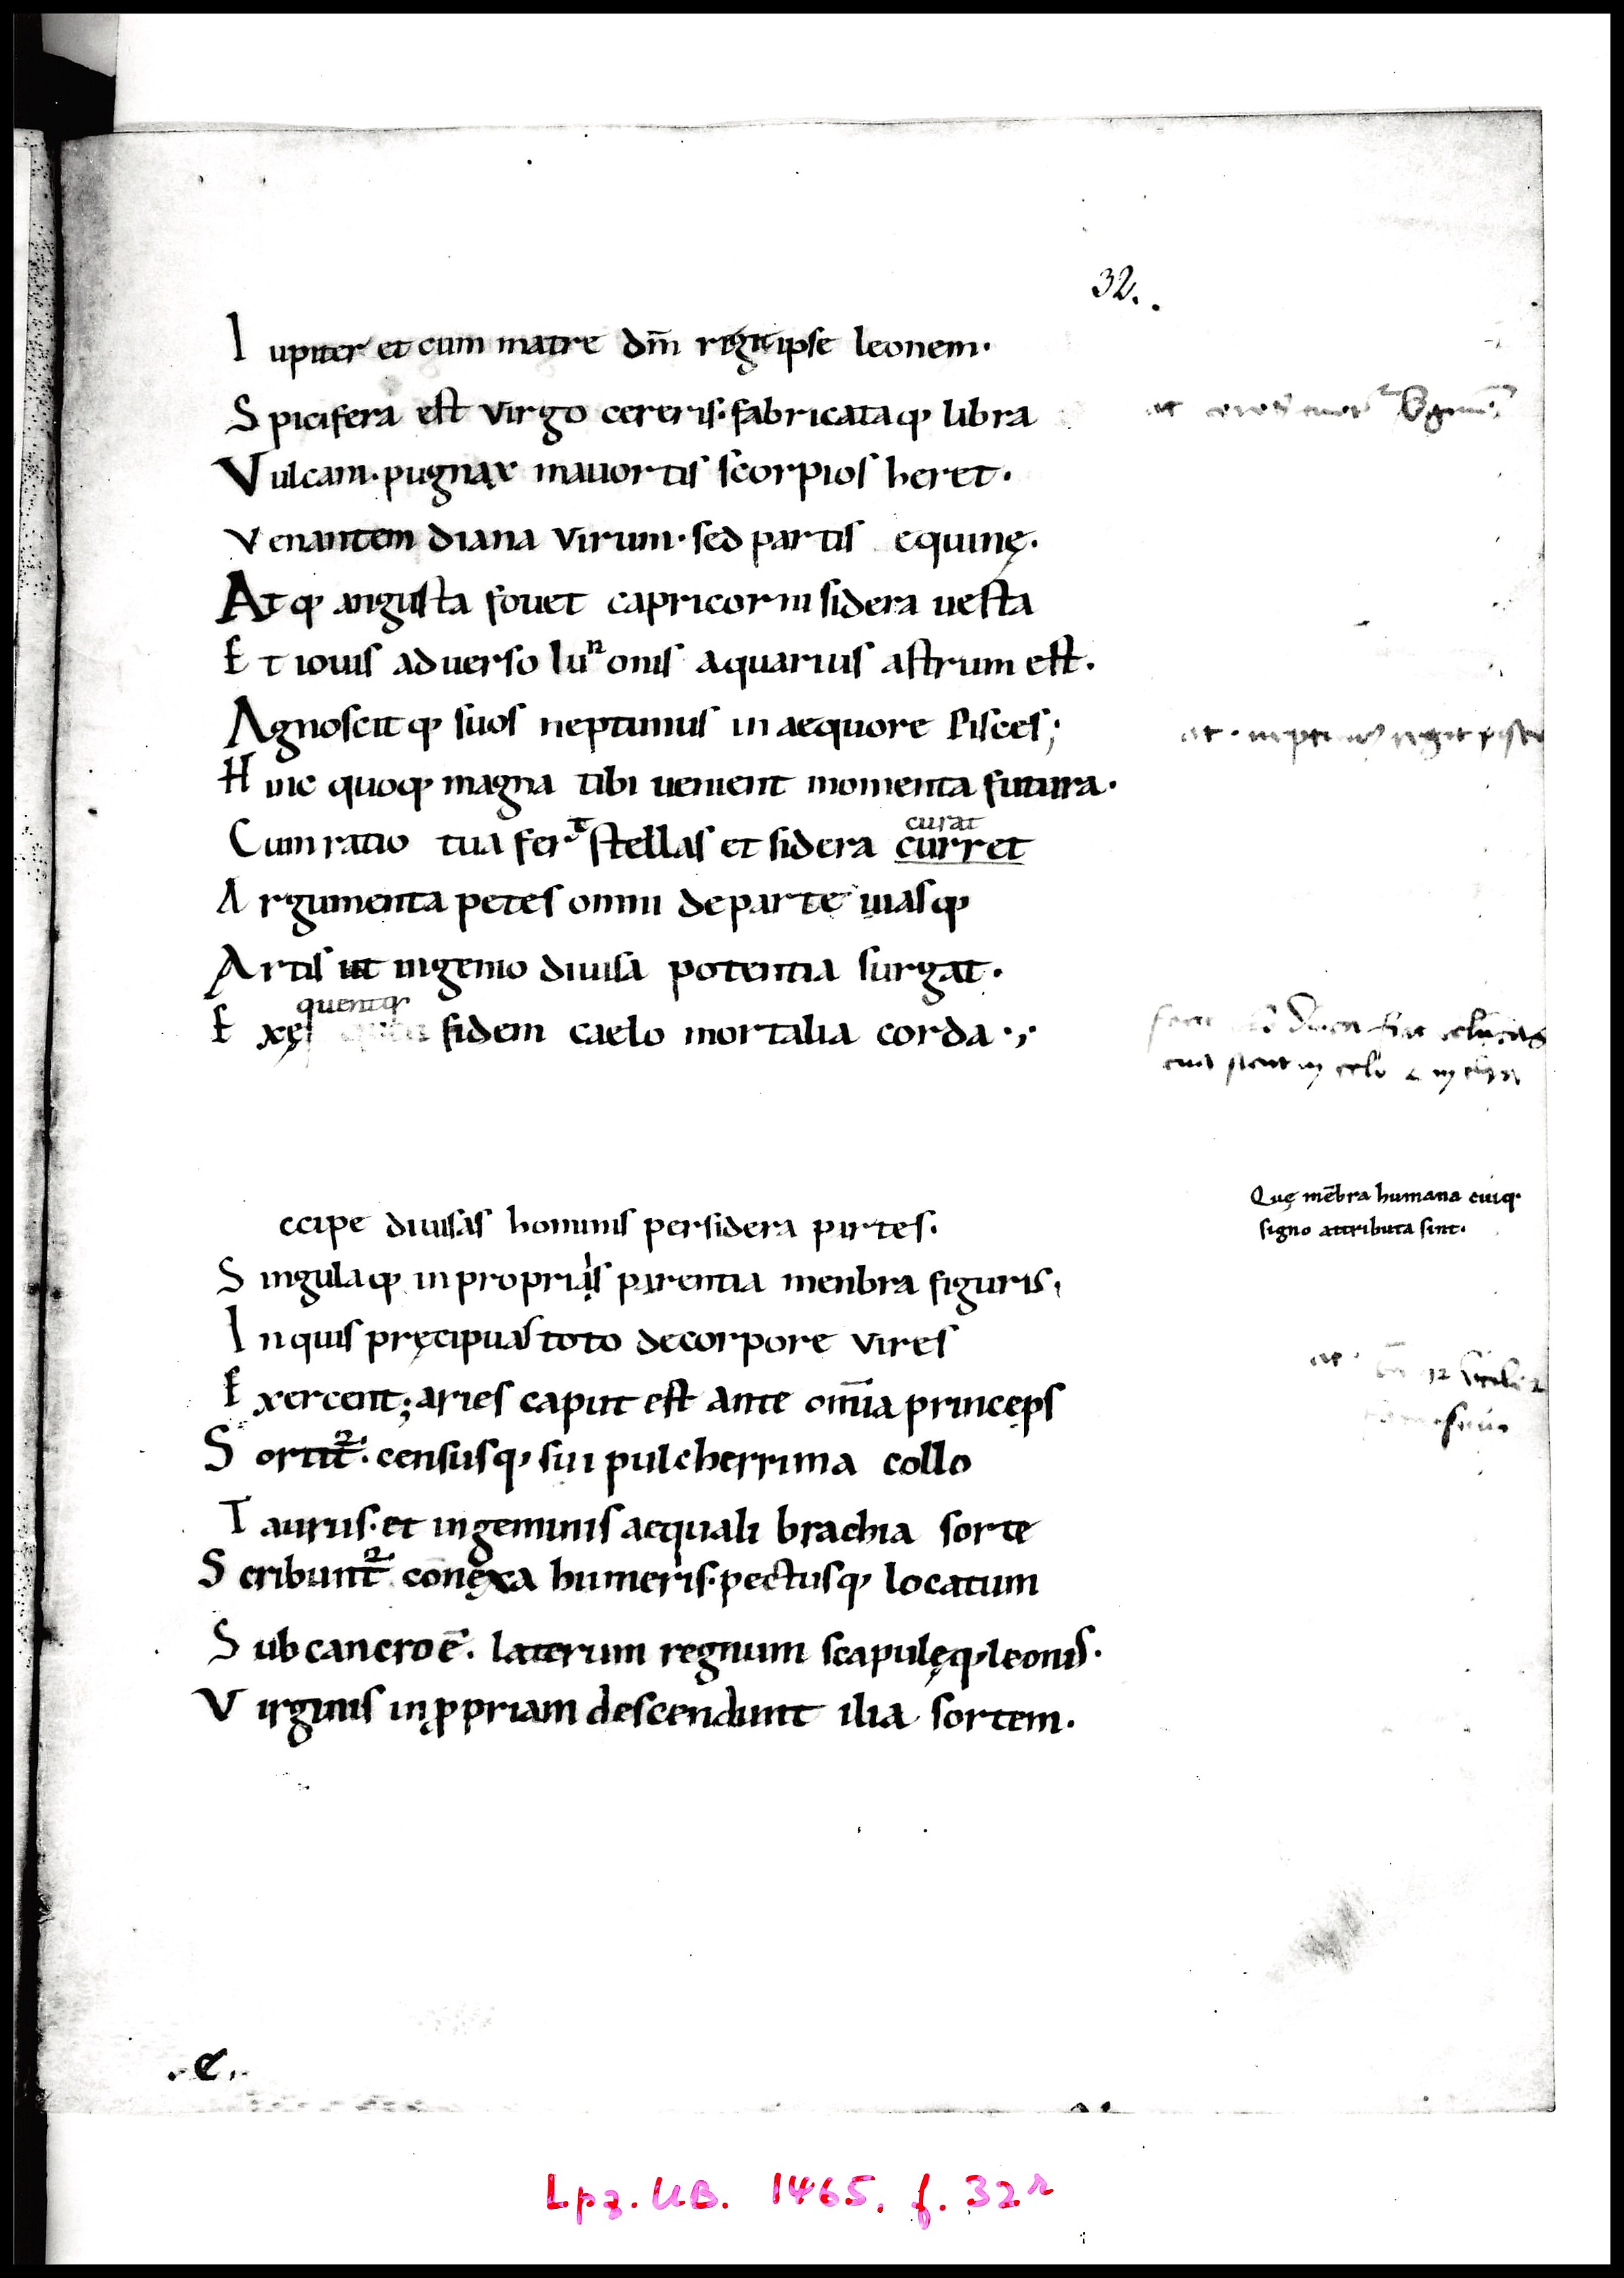 32.
Iupiter et cum matre dm̄ regit ipse leonem·
Spicifera est virgo cereris· fabricataq; libra
Vulcani· pugnax mauortis scorpios heret·
venantem diana virum· sed partis equinę·
Atq; angusta fouet capricorni sidera uesta
Et iouis aduerso Iunonis aquarius astrum est·
Agnoscitq; suos neptunus in aequore Pisces;
at· neptunus regit pisces
Huic quoq; magna tibi uenient momenta futura·
curat
Cum ratio tua fert stellas et sidera curret
Argumenta petes omni de parte uiasq;
Artis ut ingenio diuisa potentia surgat·
quentq;
Exęs fidem caelo mortalia corda·;·
ccipe diuisas hominis per sidera partes·
Quę mēbra humana cuiq;
signo attributa sint·
Singulaq; in propriis parentia menbra figuris,
In quis pręcipuas toto de corpore vires
Exercent; aries caput est ante om̄ia princeps
Sortit᷑· censusq; sui pulcherrima collo
Taurus· et in geminis aequali brachia sorte
Scribunt᷑ conęxa humeris· pectusq; locatum
Sub cancro ē· laterum regnum scapulęq; leonis·
Virginis in ꝓpriam descendunt ilia sortem·
.e.
Lpz. UB. 1465. f. 32r